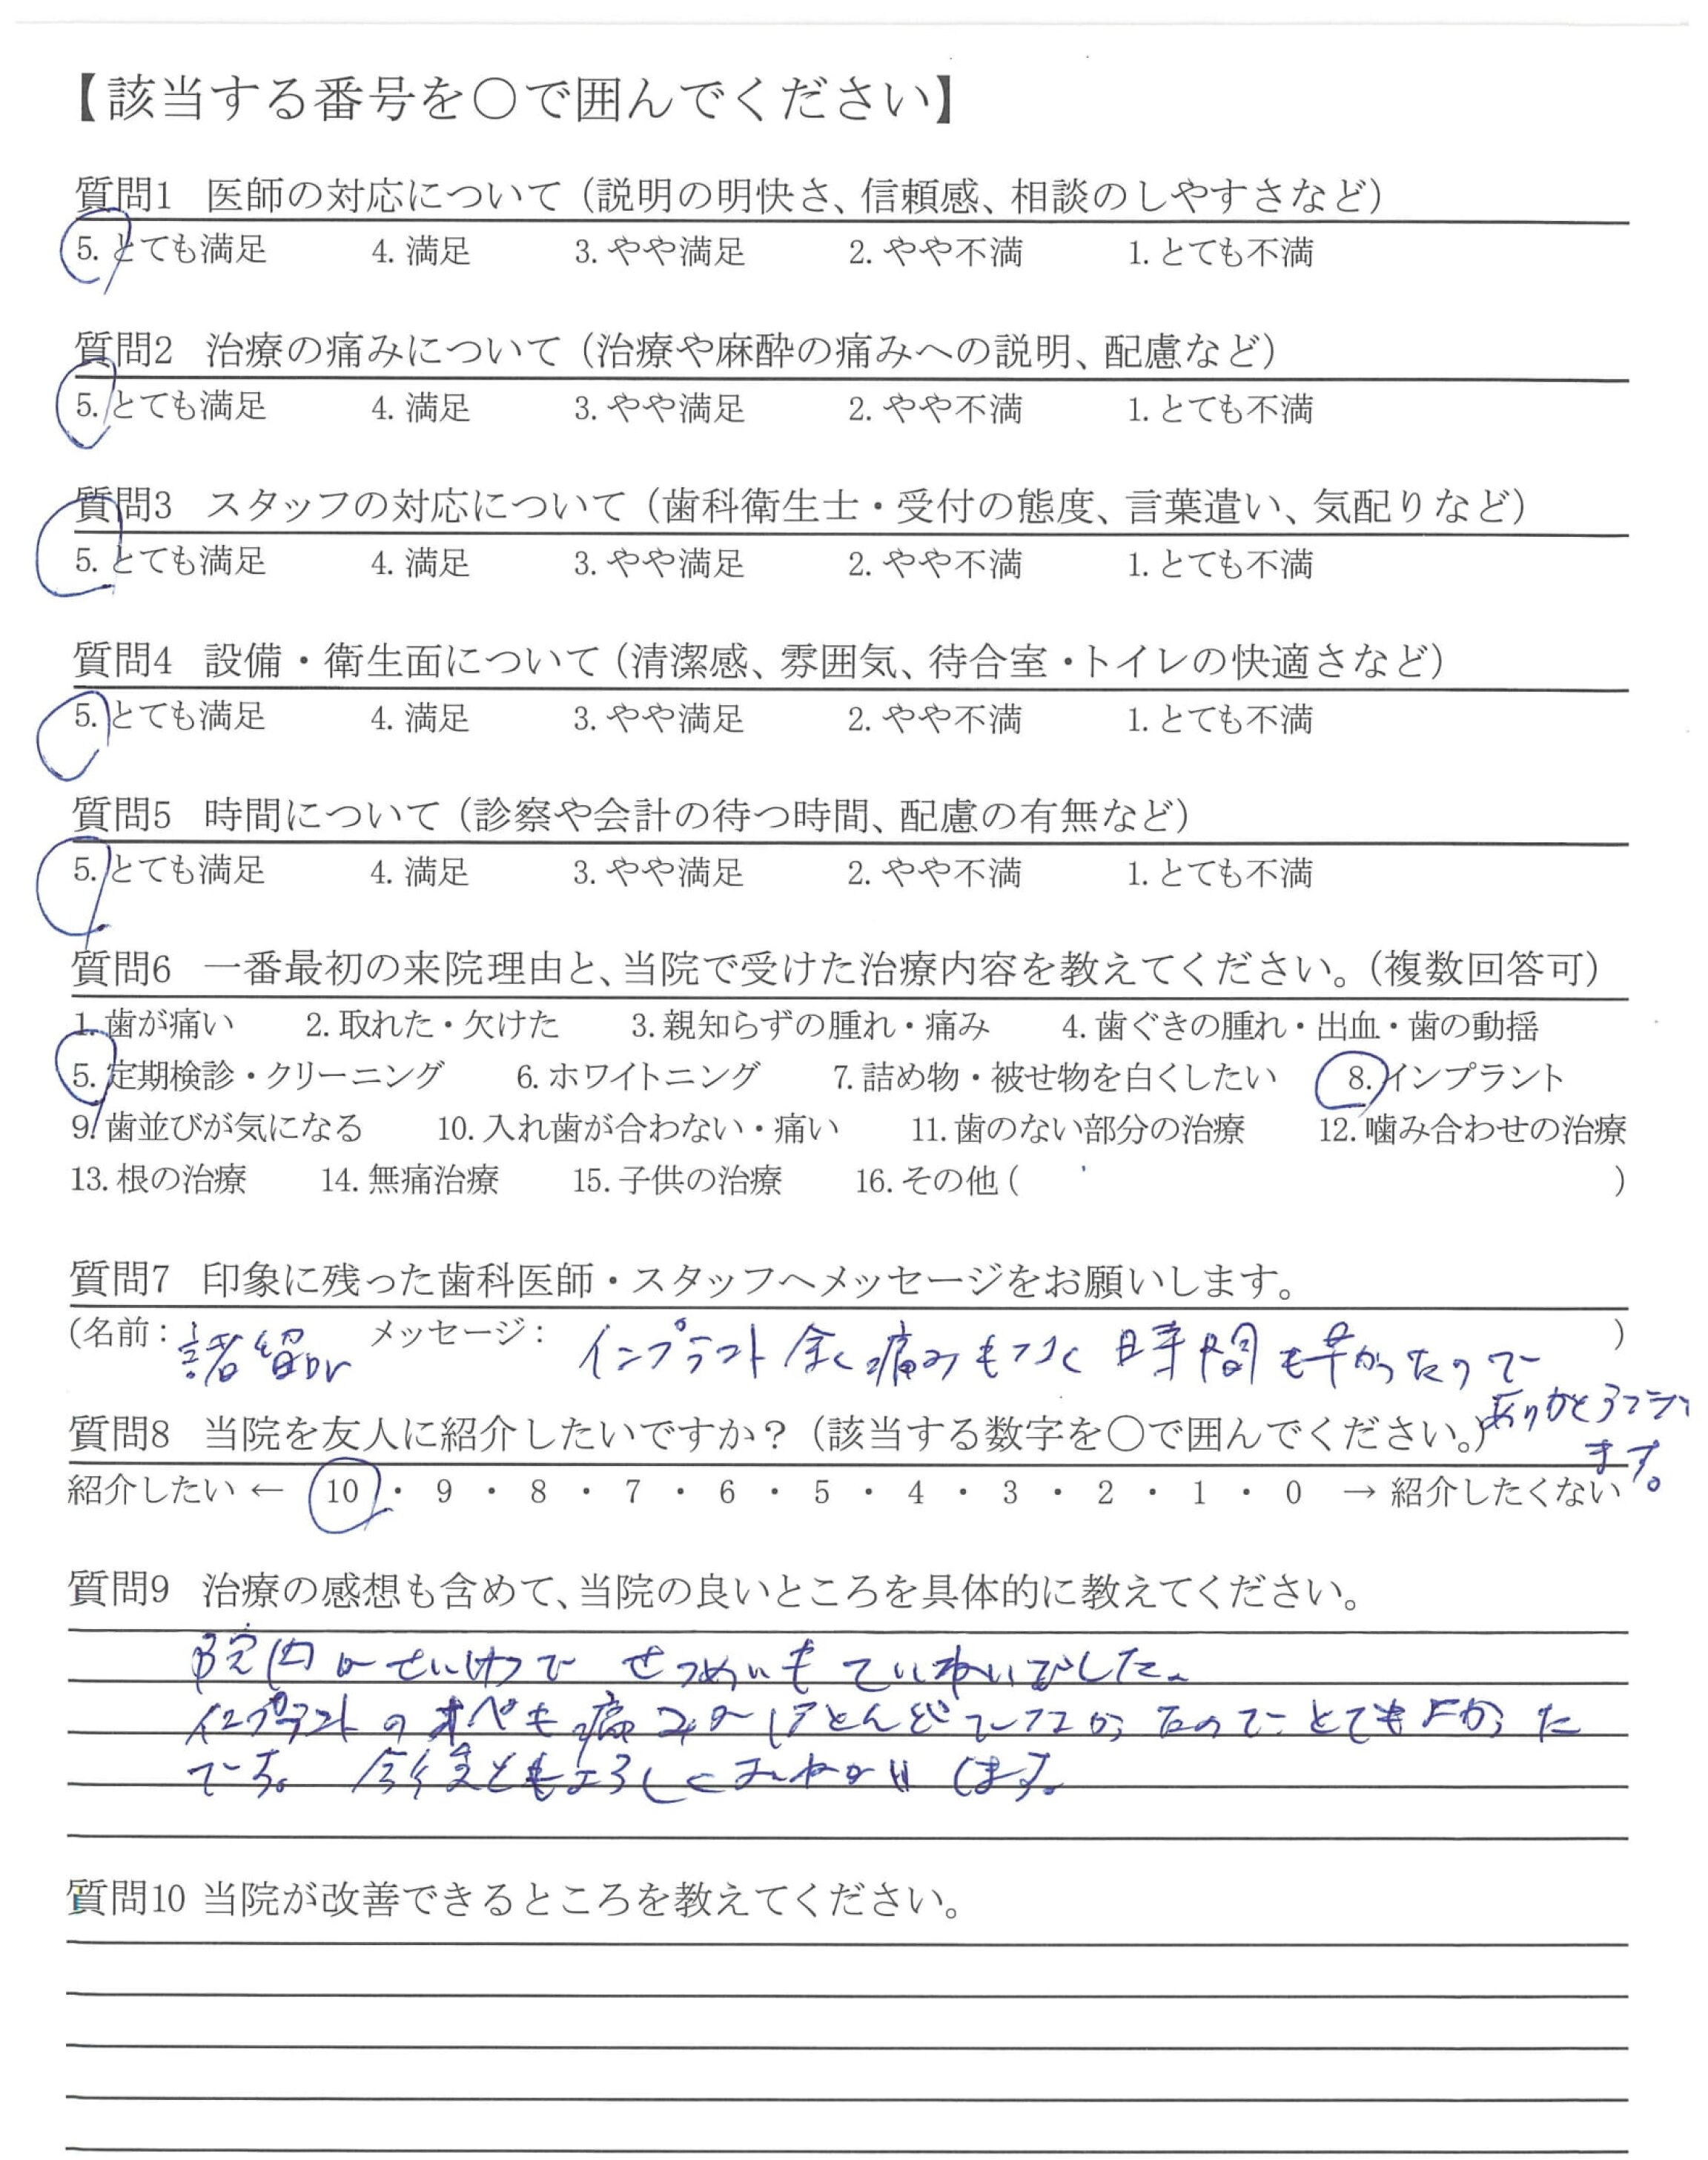 【該当する番号を○で囲んでください】
質問1 医師の対応について（説明の明快さ、信頼感、相談のしやすさなど）
5. とても満足 4. 満足 3. やや満足 2. やや不満 1. とても不満
質問2 治療の痛みについて（治療や麻酔の痛みへの説明、配慮など）
5. とても満足 4. 満足 3. やや満足 2. やや不満 1. とても不満
質問3 スタッフの対応について（歯科衛生士・受付の態度、言葉遣い、気配りなど）
5. とても満足 4. 満足 3. やや満足 2. やや不満 1. とても不満
質問4 設備・衛生面について（清潔感、雰囲気、待合室・トイレの快適さなど）
5. とても満足 4. 満足 3. やや満足 2. やや不満 1. とても不満
質問5 時間について（診察や会計の待つ時間、配慮の有無など）
5. とても満足 4. 満足 3. やや満足 2. やや不満 1. とても不満
質問6 一番最初の来院理由と、当院で受けた治療内容を教えてください。（複数回答可）
1. 歯が痛い 2. 取れた・欠けた 3. 親知らずの腫れ・痛み 4. 歯ぐきの腫れ・出血・歯の動揺
5. 定期検診・クリーニング 6. ホワイトニング 7. 詰め物・被せ物を白くしたい 8. インプラント
9. 歯並びが気になる 10. 入れ歯が合わない・痛い 11. 歯のない部分の治療 12. 噛み合わせの治療
13. 根の治療 14. 無痛治療 15. 子供の治療 16. その他 ( )
質問7 印象に残った歯科医師・スタッフへメッセージをお願いします。
(名前： Dr メッセージ： インプラント余く痛みもなく時間も早かったので )
ありがとうござい
ます。
質問8 当院を友人に紹介したいですか？（該当する数字を○で囲んでください。）
紹介したい ← 10 ・ 9 ・ 8 ・ 7 ・ 6 ・ 5 ・ 4 ・ 3 ・ 2 ・ 1 ・ 0 → 紹介したくない
質問9 治療の感想も含めて、当院の良いところを具体的に教えてください。
院内がせいけつで せつめいもていねいでした。
インプラントのオペも痛みがほとんどでなかったのでとてもよかった
です。今後ともよろしくおねがいします。
質問10 当院が改善できるところを教えてください。